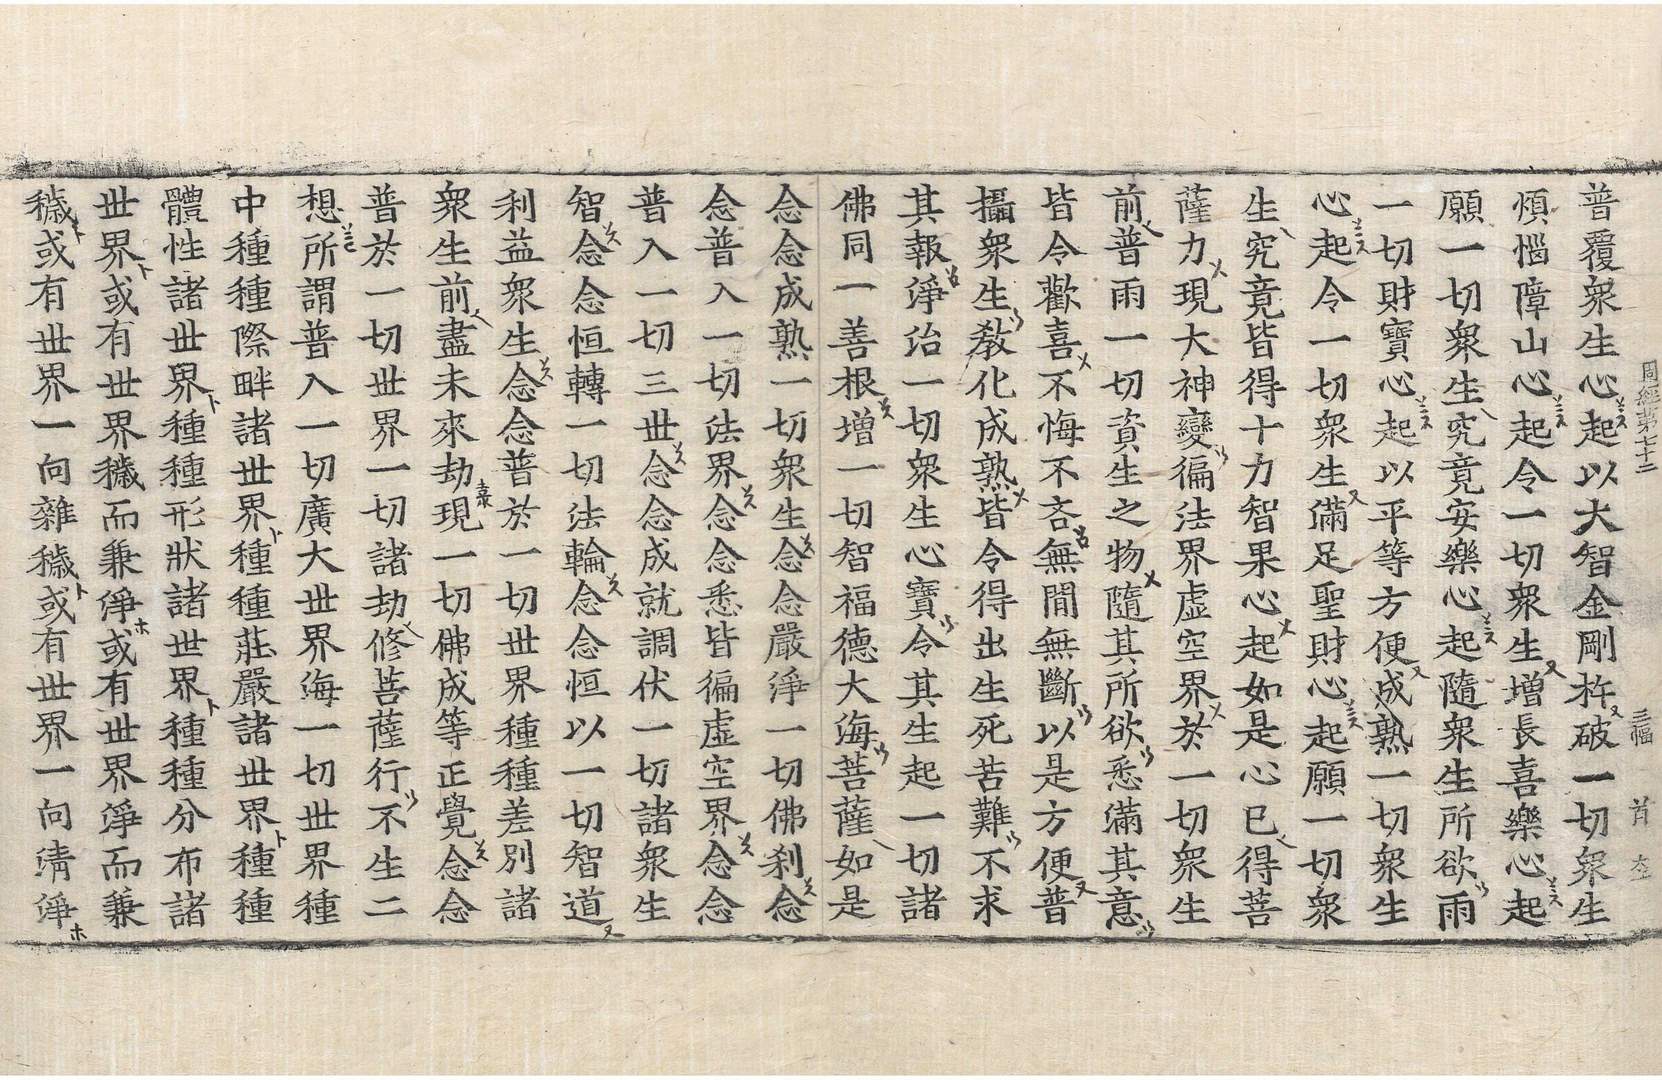 周經第七十二 三幅 首
普覆衆生心起以大智金剛杵破一切衆生
煩惱障山心起令一切衆生增長喜樂心起
願一切衆生究竟安樂心起隨衆生所欲雨
一切財寶心起以平等方便成熟一切衆生
心起令一切衆生滿足聖財心起願一切衆
生究竟皆得十力智果心起如是心已得菩
薩力現大神變徧法界虛空界於一切衆生
前普雨一切資生之物隨其所欲悉滿其意
皆令歡喜不悔不吝無間無斷以是方便普
攝衆生教化成熟皆令得出生死苦難不求
其報淨治一切衆生心寶令其生起一切諸
佛同一善根增一切智福德大海菩薩如是
念念成熟一切衆生念念嚴淨一切佛刹念
念普入一切法界念念悉皆徧虛空界念念
普入一切三世念念成就調伏一切諸衆生
智念念恒轉一切法輪念念恒以一切智道
利益衆生念念普於一切世界種種差別諸
衆生前盡未來劫現一切佛成等正覺念念
普於一切世界一切諸劫修菩薩行不生二
想所謂普入一切廣大世界海一切世界種
中種種際畔諸世界種種莊嚴諸世界種種
體性諸世界種種形狀諸世界種種分布諸
世界或有世界穢而兼淨或有世界淨而兼
穢或有世界一向雜穢或有世界一向清淨